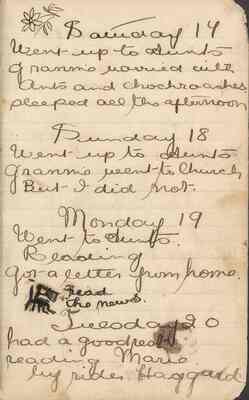 Saturday 17
Went up to Aunts
Granma worried with
Ants and chockroaches
sleeped all the afternoon
Sunday 18
Went up to Aunts
Granma went to Church
But I did not.
Monday 19
Went to Aunts.
Reading
Got a letter from home.
Read
the news.
Tuesday 20
had a good
reading Marie
by rider Haggard